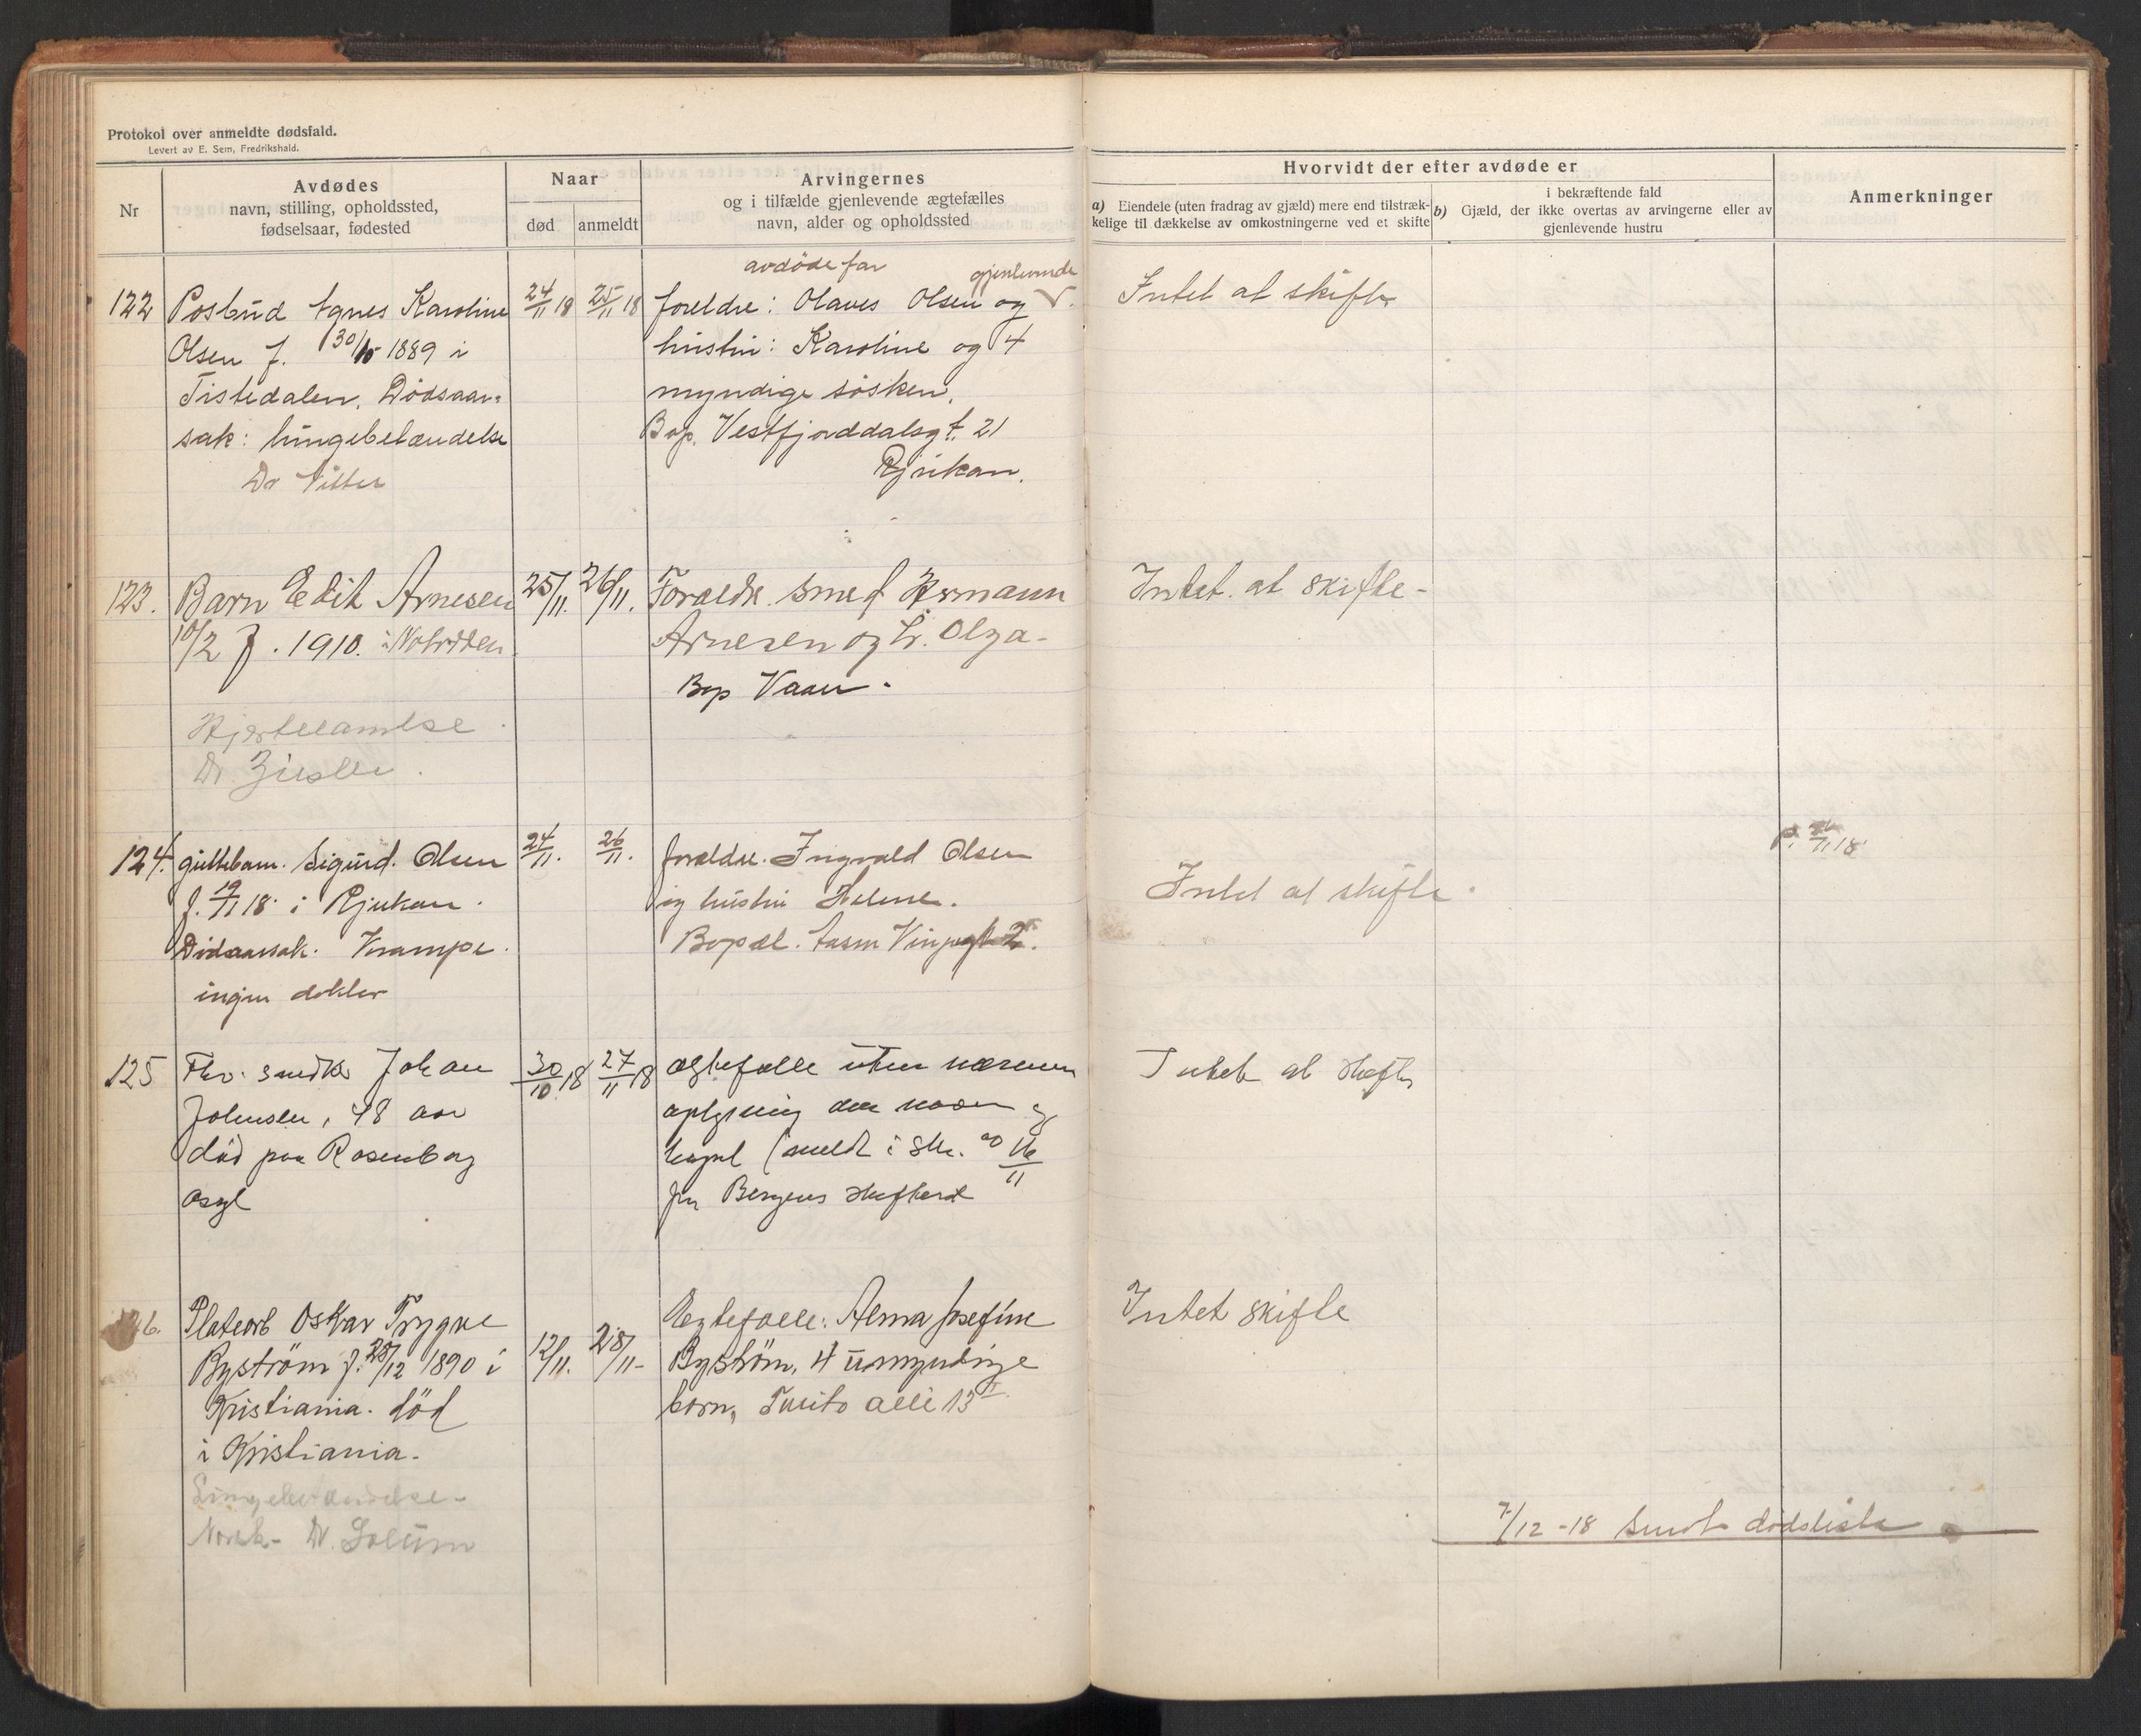 Protokol over anmeldte dødsfald.
Levert av E. Sem, Fredrikshald.
Nr
Avdødes
navn, stilling, opholdssted,
fødselsaar, fødested
Naar
død
anmeldt
Arvingernes
og i tilfælde gjenlevende ægtefælles
navn, alder og opholdssted
Hvorvidt der efter avdøde er
a) Eiendele (uten fradrag av gjæld) mere end tilstræk-
kelige til dækkelse av omkostningerne ved et skifte
i bekræftende fald
b) Gjæld, der ikke overtas av arvingerne eller av
gjenlevende hustru
Anmerkninger
122
Postbud Agnes Karoline
Olsen f. 30/10 1889 i
Tistedalen. Dödsaar-
sak: lungebetændelse
Dr
24/11 18
25/11 18
avdöde far gjenlevende
foreldre: Olaves Olsen og
hustru: Karoline og 4
myndige sösken.
Bop. Vestfjorddalsgt. 21
Rjukan.
Intet at skifte
123.
Barn Edit Arnesen
10/2 f. 1910. i Notodden
Hjertelamelse
Dr.
25/11.
26/11.
Foreldre smed Hermann
Arnesen og h. Olga-
Bop Vaaer.
Intet. at skifte-
124.
guttebarn. Sigurd. Olsen
f. 19/11 18. i Rjukan.
Dödsaarsak. Krampe.
ingen doktor
24/11.
26/11.
foreldre. Ingvald Olsen
og hustru Helene.
Bopæl. Aasm Vinjesgt 2.
Intet at skifte.
125
Johan
Johnsen, 48 aar
död paa Rosenborg
asyl
30/10 18
27/11 18
ægtefælle uten nærmere
oplysning om navn og
bopæl (meldt i skr. av 16/11
fra Bergens skifteret
Intet at skifte
126.
Platearb Oskar Trygve
Byström f. 28/12 1890 i
Kristiania. död
i Kristiania.
Lungebetændelse-
Norsk- Dr. Solum
12/11.
28/11-
Ægtefælle: Alma Josefine
Byström, 4 umyndige
born, Tveito alle 13 II.
Intet skifte
7/12-18 Sendt dödsliste